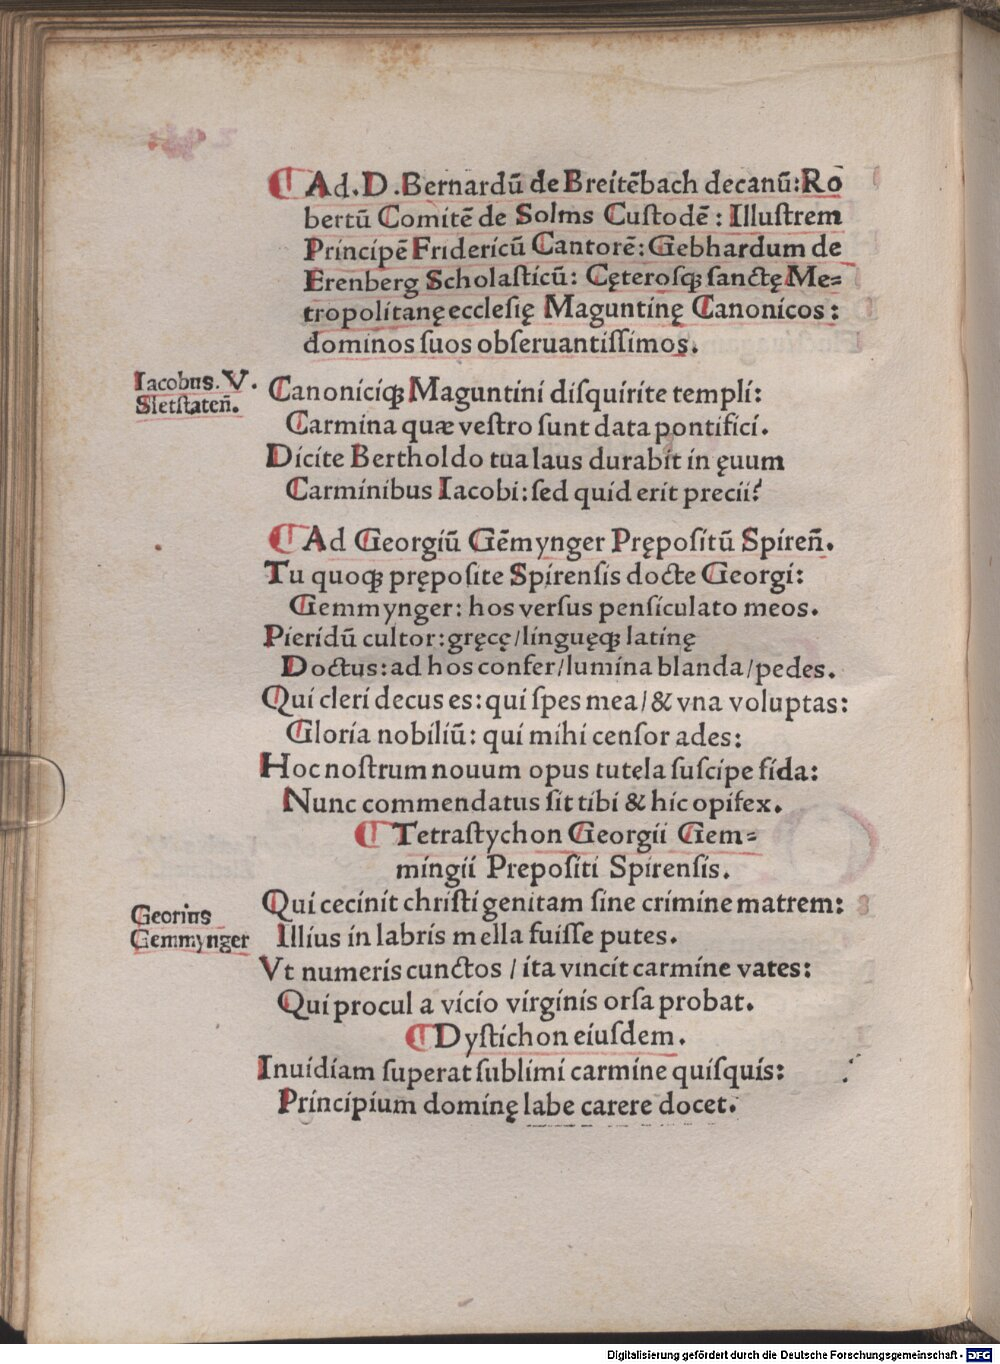 ¶ Ad. D. Bernardū de Breitēbach decanū: Ro
bertū Comitē de Solms Custodē: Illustrem
Principē Fridericū Cantorē: Gebhardum de
Erenberg Scholasticū: Cęterosqꝫ sanctę Me⸗
tropolitanę ecclesię Maguntinę Canonicos:
dominos suos obseruantissimos.
Iacobus. V.
Sletstateñ.
Canoniciqꝫ Maguntini disquirite templi:
Carmina quæ vestro sunt data pontifici.
Dicite Bertholdo tua laus durabit in ęuum
Carminibus Iacobi: sed quid erit precii?
¶ Ad Georgiū Gēmynger Prępositū Spireñ.
Tu quoqꝫ pręposite Spirensis docte Georgi:
Gemmynger: hos versus pensiculato meos.
Pieridū cultor: gręcę/linguęqꝫ latinę
Doctus: ad hos confer/lumina blanda/pedes.
Qui cleri decus es: qui spes mea/& vna voluptas:
Gloria nobiliū: qui mihi censor ades:
Hoc nostrum nouum opus tutela suscipe fida:
Nunc commendatus sit tibi & hic opifex.
¶ Tetrastychon Georgii Gem⸗
mingii Prepositi Spirensis.
Georius
Gemmynger
Qui cecinit christi genitam sine crimine matrem:
Illius in labris mella fuisse putes.
Vt numeris cunctos / ita vincit carmine vates:
Qui procul a vicio virginis orsa probat.
¶ Dystichon eiusdem.
Inuidiam superat sublimi carmine quisquis:
Principium dominę labe carere docet.
Digitalisierung gefördert durch die Deutsche Forschungsgemeinschaft - DFG